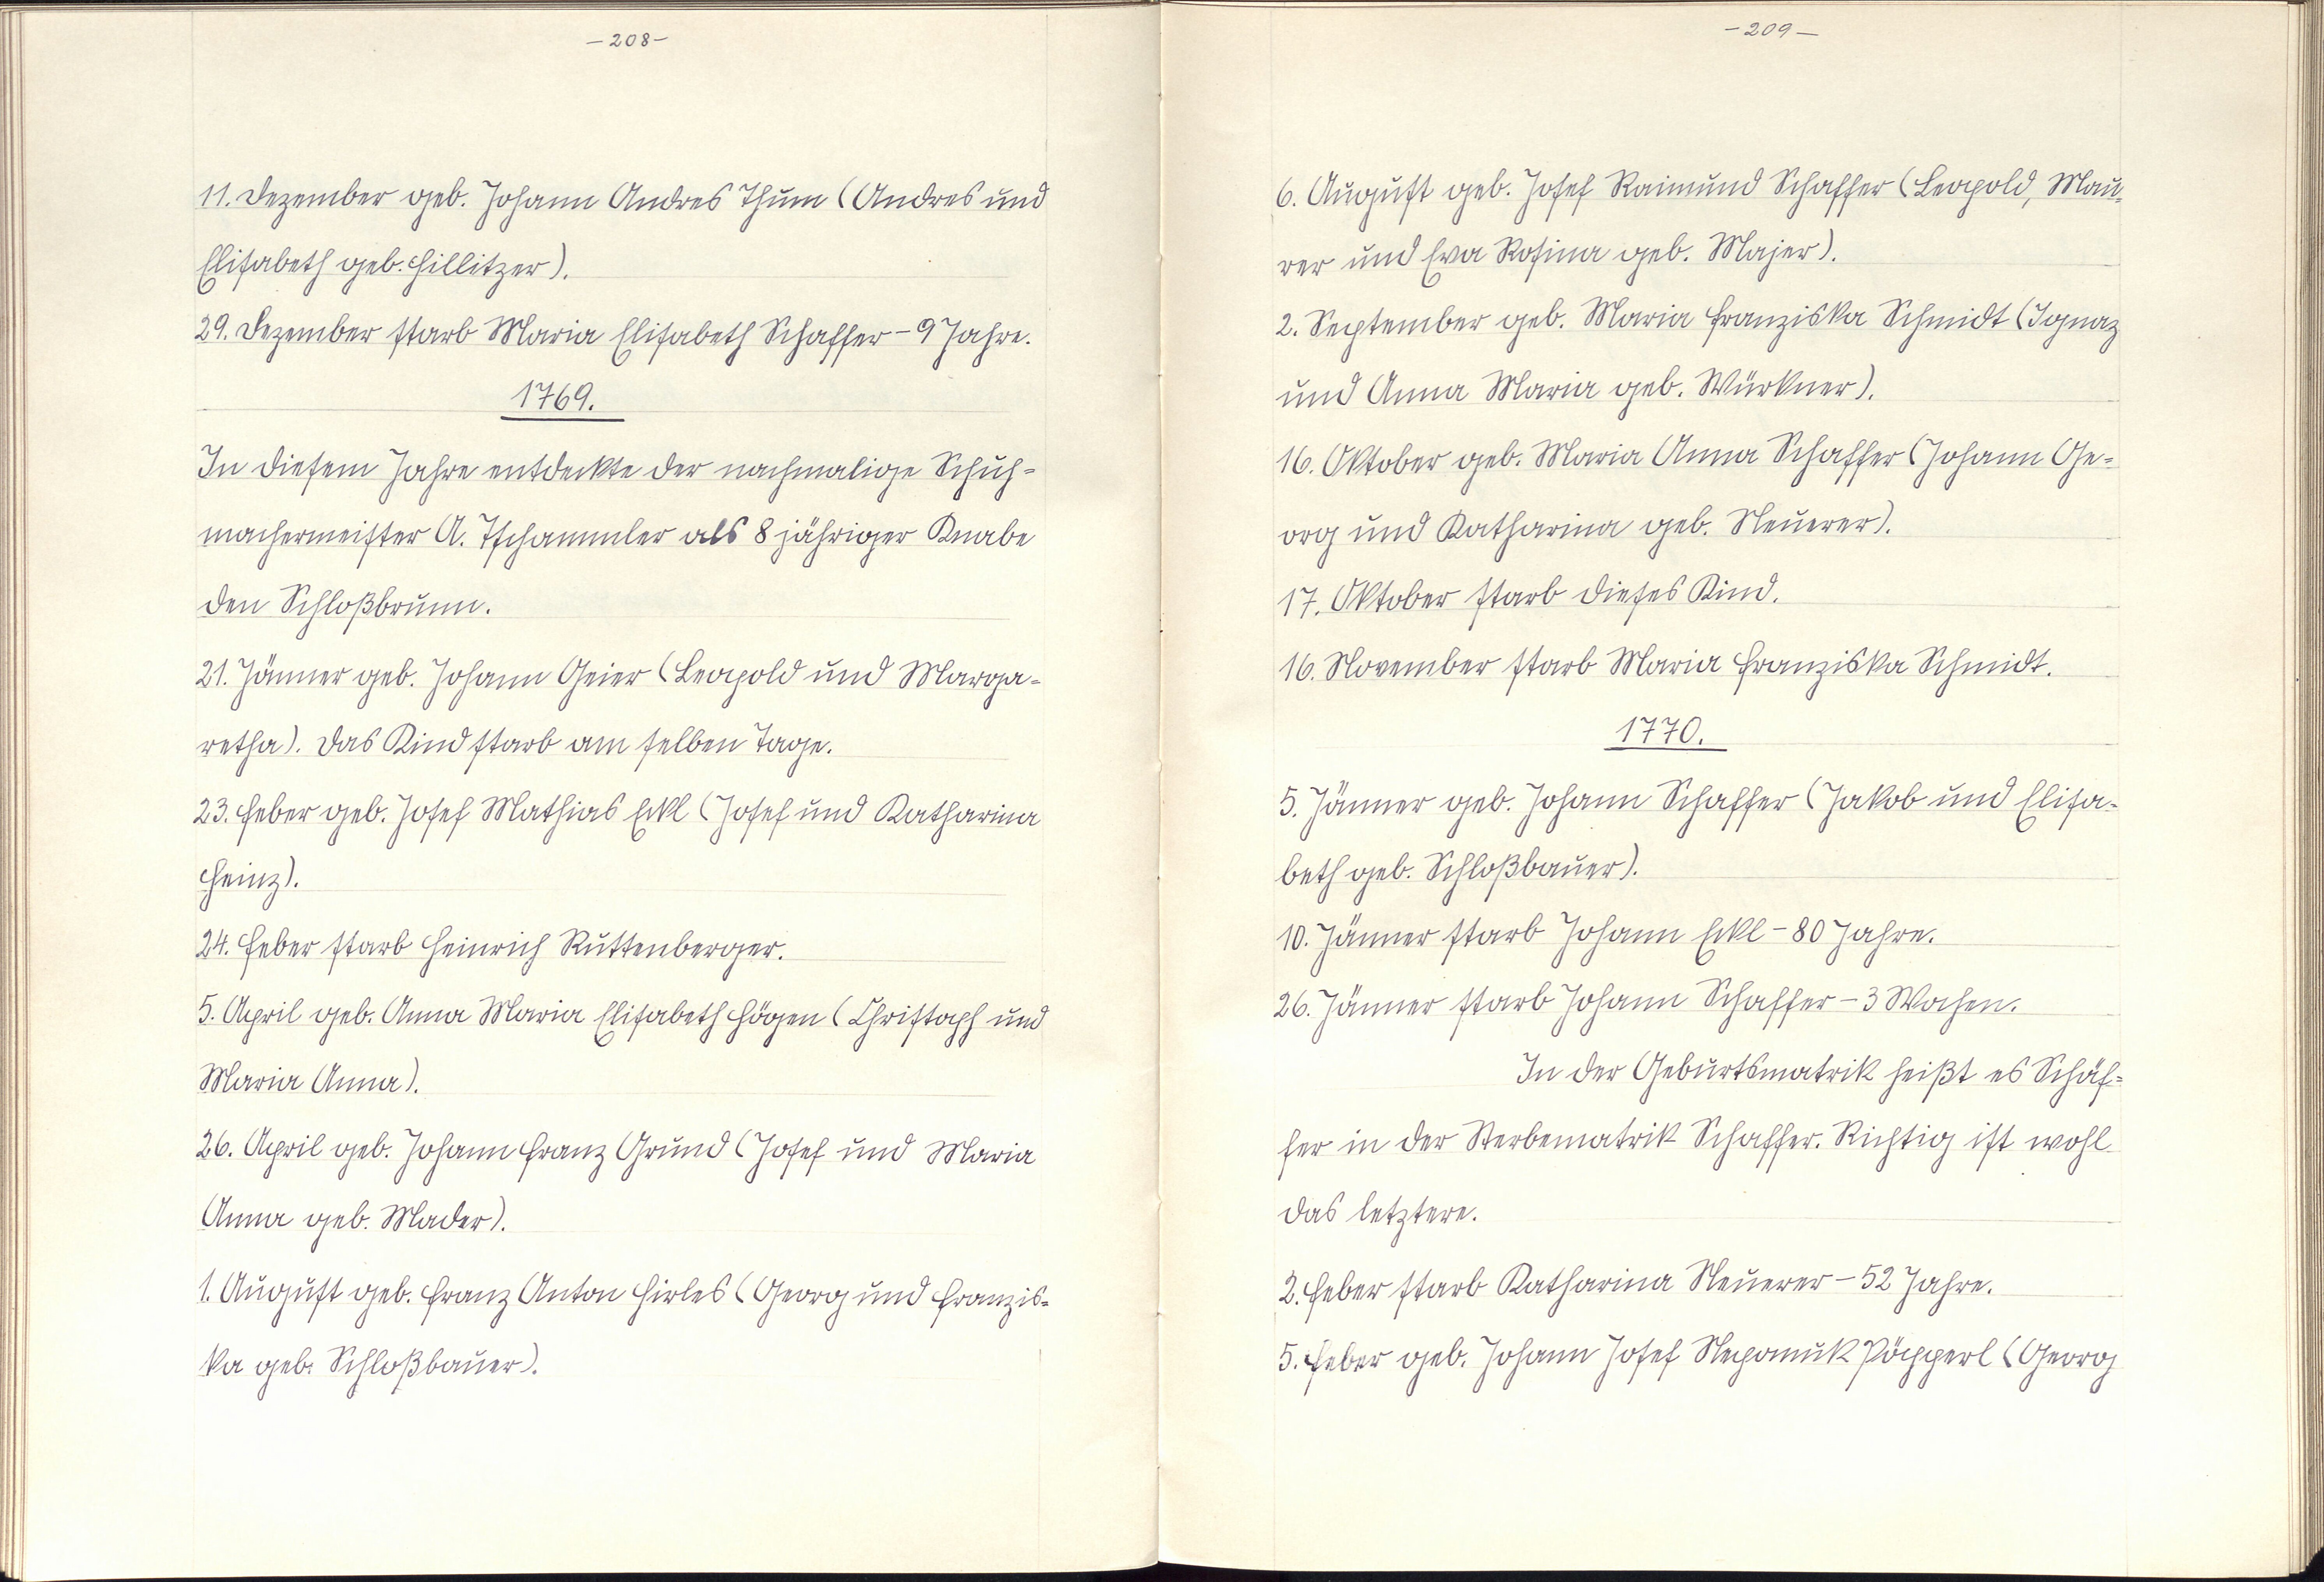 -208-
11. Dezember geb. Johann Andres Thum (Andres und
Elisabeth geb. Hillitzer).
29. Dezember starb Maria Elisabeth Schaffer - 9 Jahre.
1769.
In diesem Jahre entdeckte der nachmalige Schuh-
machermeister A. Tschammler als 8 jähriger Knabe
den Schloßbrunn.
21. Jänner geb. Johann Geier (Leopold und Marga-
retha). Das Kind starb am selben Tage.
23. Feber geb. Josef Mathias Eckl (Josef und Katharina
Heinz).
24. Feber starb Heinrich Ruttenberger.
5. April geb. Anna Maria Elisabeth Högen (Christoph und
Maria Anna).
26. April geb. Johann Franz Grund (Josef und Maria
Anna geb. Mader).
1. August geb. Franz Anton Hirles (Georg und Franzis-
ka geb. Schloßbauer).
-209-
6. August geb. Josef Raimund Schaffer (Leopold, Mau-
rer und Eva Rosina geb. Majer).
2. September geb. Maria Franziska Schmidt (Ignaz
und Anna Maria geb. Würkner).
16. Oktober geb. Maria Anna Schaffer (Johann Ge-
org und Katharina geb. Neuerer).
17. Oktober starb dieses Kind.
16. November starb Maria Franziska Schmidt.
1770.
5. Jänner geb. Johann Schaffer (Jakob und Elisa-
beth geb. Schloßbauer).
10. Jänner starb Johann Eckl - 80 Jahre.
26. Jänner starb Johann Schaffer - 3 Wochen.
In der Geburtsmatrik heißt es Schäf-
fer in der Sterbematrik Schaffer. Richtig ist wohl
das letztere.
2. Feber starb Katharina Neuerer - 52 Jahre.
5. Feber geb. Johann Josef Nepomuk Pöpperl (Georg